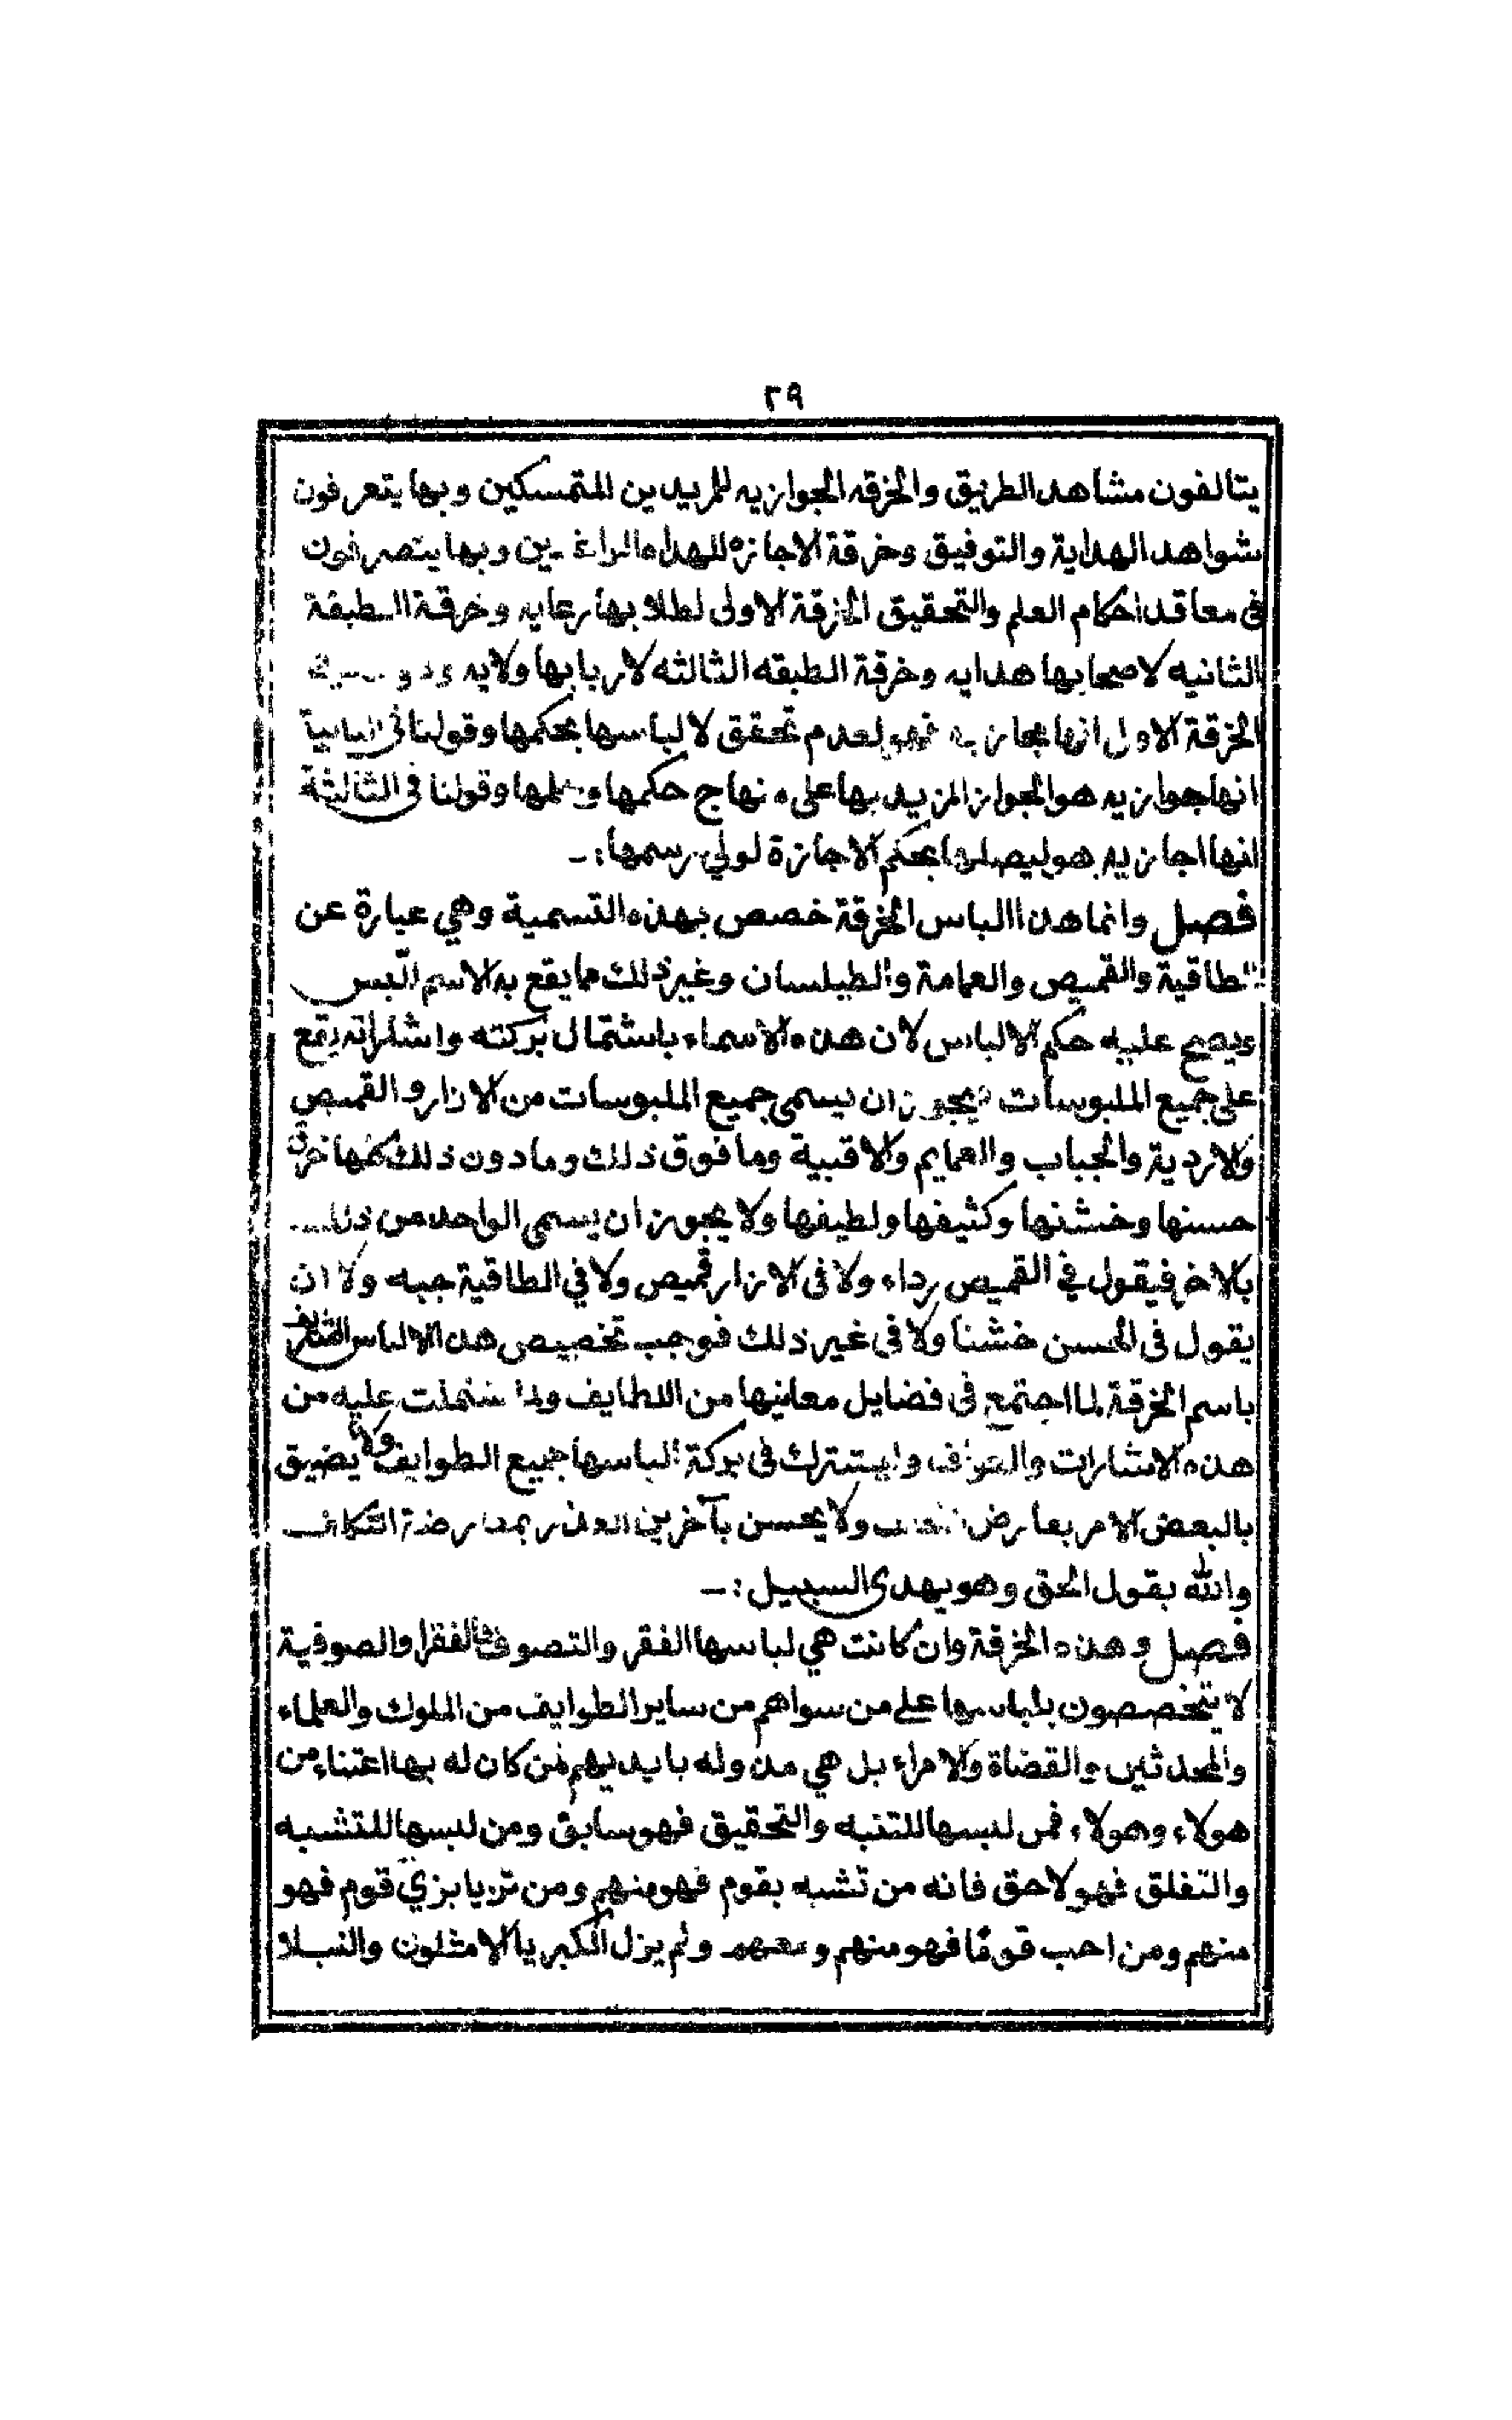 ٢٩
يتالفون مشاهد الطريق والخرقه الجوازيه للمريدين المتمسكين وبها يتعرفون
شواهد الهداية والتوفيق وخرقة الاجازه للهداه وبها يتصرفون
فى معاقد احكام العلم والتحقيق الخرقة الاولى لطلابها رعايه وخرقة الطبقة
الثانيه لاصحابها هدايه وخرقة الطبقه الثالثه لاربابها ولايه
الخرقة الاولى انها مجازيه فهو لعدم تحقق لالباسها بحكمها وقولنا فى الثانية
انها جوازيه هو الجواز المزيد بها على منهاج حكمها وقولنا فى الثالثة
انها اجازيه هو ليصلها بحكم الاجازة لولي رسمها :ـ
فصل وانما هذا الباس الخرقة خصص بهذه التسمية وهي عبارة عن
الطاقية والقميص والعمامة والطيلسان وغير ذلك مما يقع به الاسم اللبس
ويصح عليه حكم الالباس لان هذه الاسماء باشتمال بركته واشاراته يقع
على جميع الملبوسات ان يسمى جميع الملبوسات من الازار والقميص
والاردية والجباب والعمايم والاقبية وما فوق ذلك وما دون ذلك كلها خرق
حسنها وخشنها وكثيفها ولطيفها ولا يجوز ان يسمى الواحد من ذلك
بالاخر فيقول في القميص رداء ولا فى الازار قميص ولا في الطاقية جبه ولا ان
يقول فى الحسن خشنا ولا فى غير ذلك فوجب تخصيص هذا الالباس
باسم الخرقة لما اجتمع فى فضايل معانيها من اللطايف ولما شتملت عليه من
هذه الاشارات والعوارف وليشترك فى بركة الباسها جميع الطوايف ولا يضيق
بالبعض الامر بعارض ولا يحسن بآخرين العذر بمعارضة التكاليف
والله يقول الحق وهو يهدى السبيل :ـ
فصل وهذه الخرقة وان كانت هي لباسها الفقر والتصوف فالفقرا والصوفية
لا يتخصصون بلباسها على من سواهم من ساير الطوايف من الملوك والعلماء
والمحدثين والقضاة والامراء بل هي مدوله بايديهم فمن كان له بها اعتناء من
هولاء وهولاء فمن لبسها للتنبه والتحقيق فهو سابق ومن لبسها للتشبه
والتفلق فهو لاحق فانه من تشبه بقوم فهو منهم ومن تزيا بزي قوم فهو
منهم ومن احب قومًا فهو منهم ومعهم ولم يزل الكبريا الامثلون والنبلا